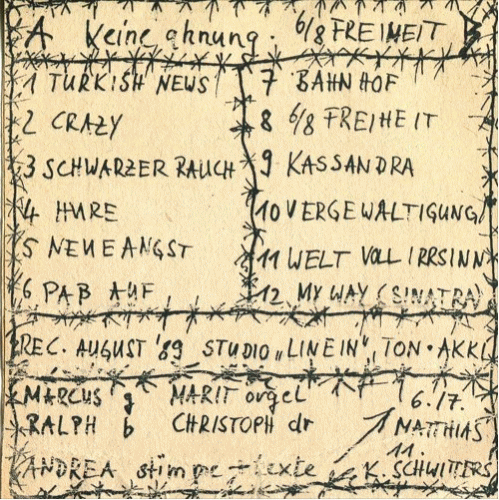 A keine ahnung. 6/8 FREIHEIT B
1 TURKISH NEWS
2 CRAZY
3 SCHWARZER RAUCH
4 HURE
5 NEUE ANGST
6 PAB AUF
7 BAHNHOF
8 6/8 FREIHEIT
9 KASSANDRA
10 VERGEWALTIGUNG
11 WELT VOLL IRRSINN
12 MY WAY (SINATRA)
REC. AUGUST '89 STUDIO „LINE IN", TON · AKKI
MARCUS g MARIT orgel
RALPH b CHRISTOPH dr
ANDREA stimme + texte
6./7.
1 MATTHIAS
11
K. SCHWITTERS